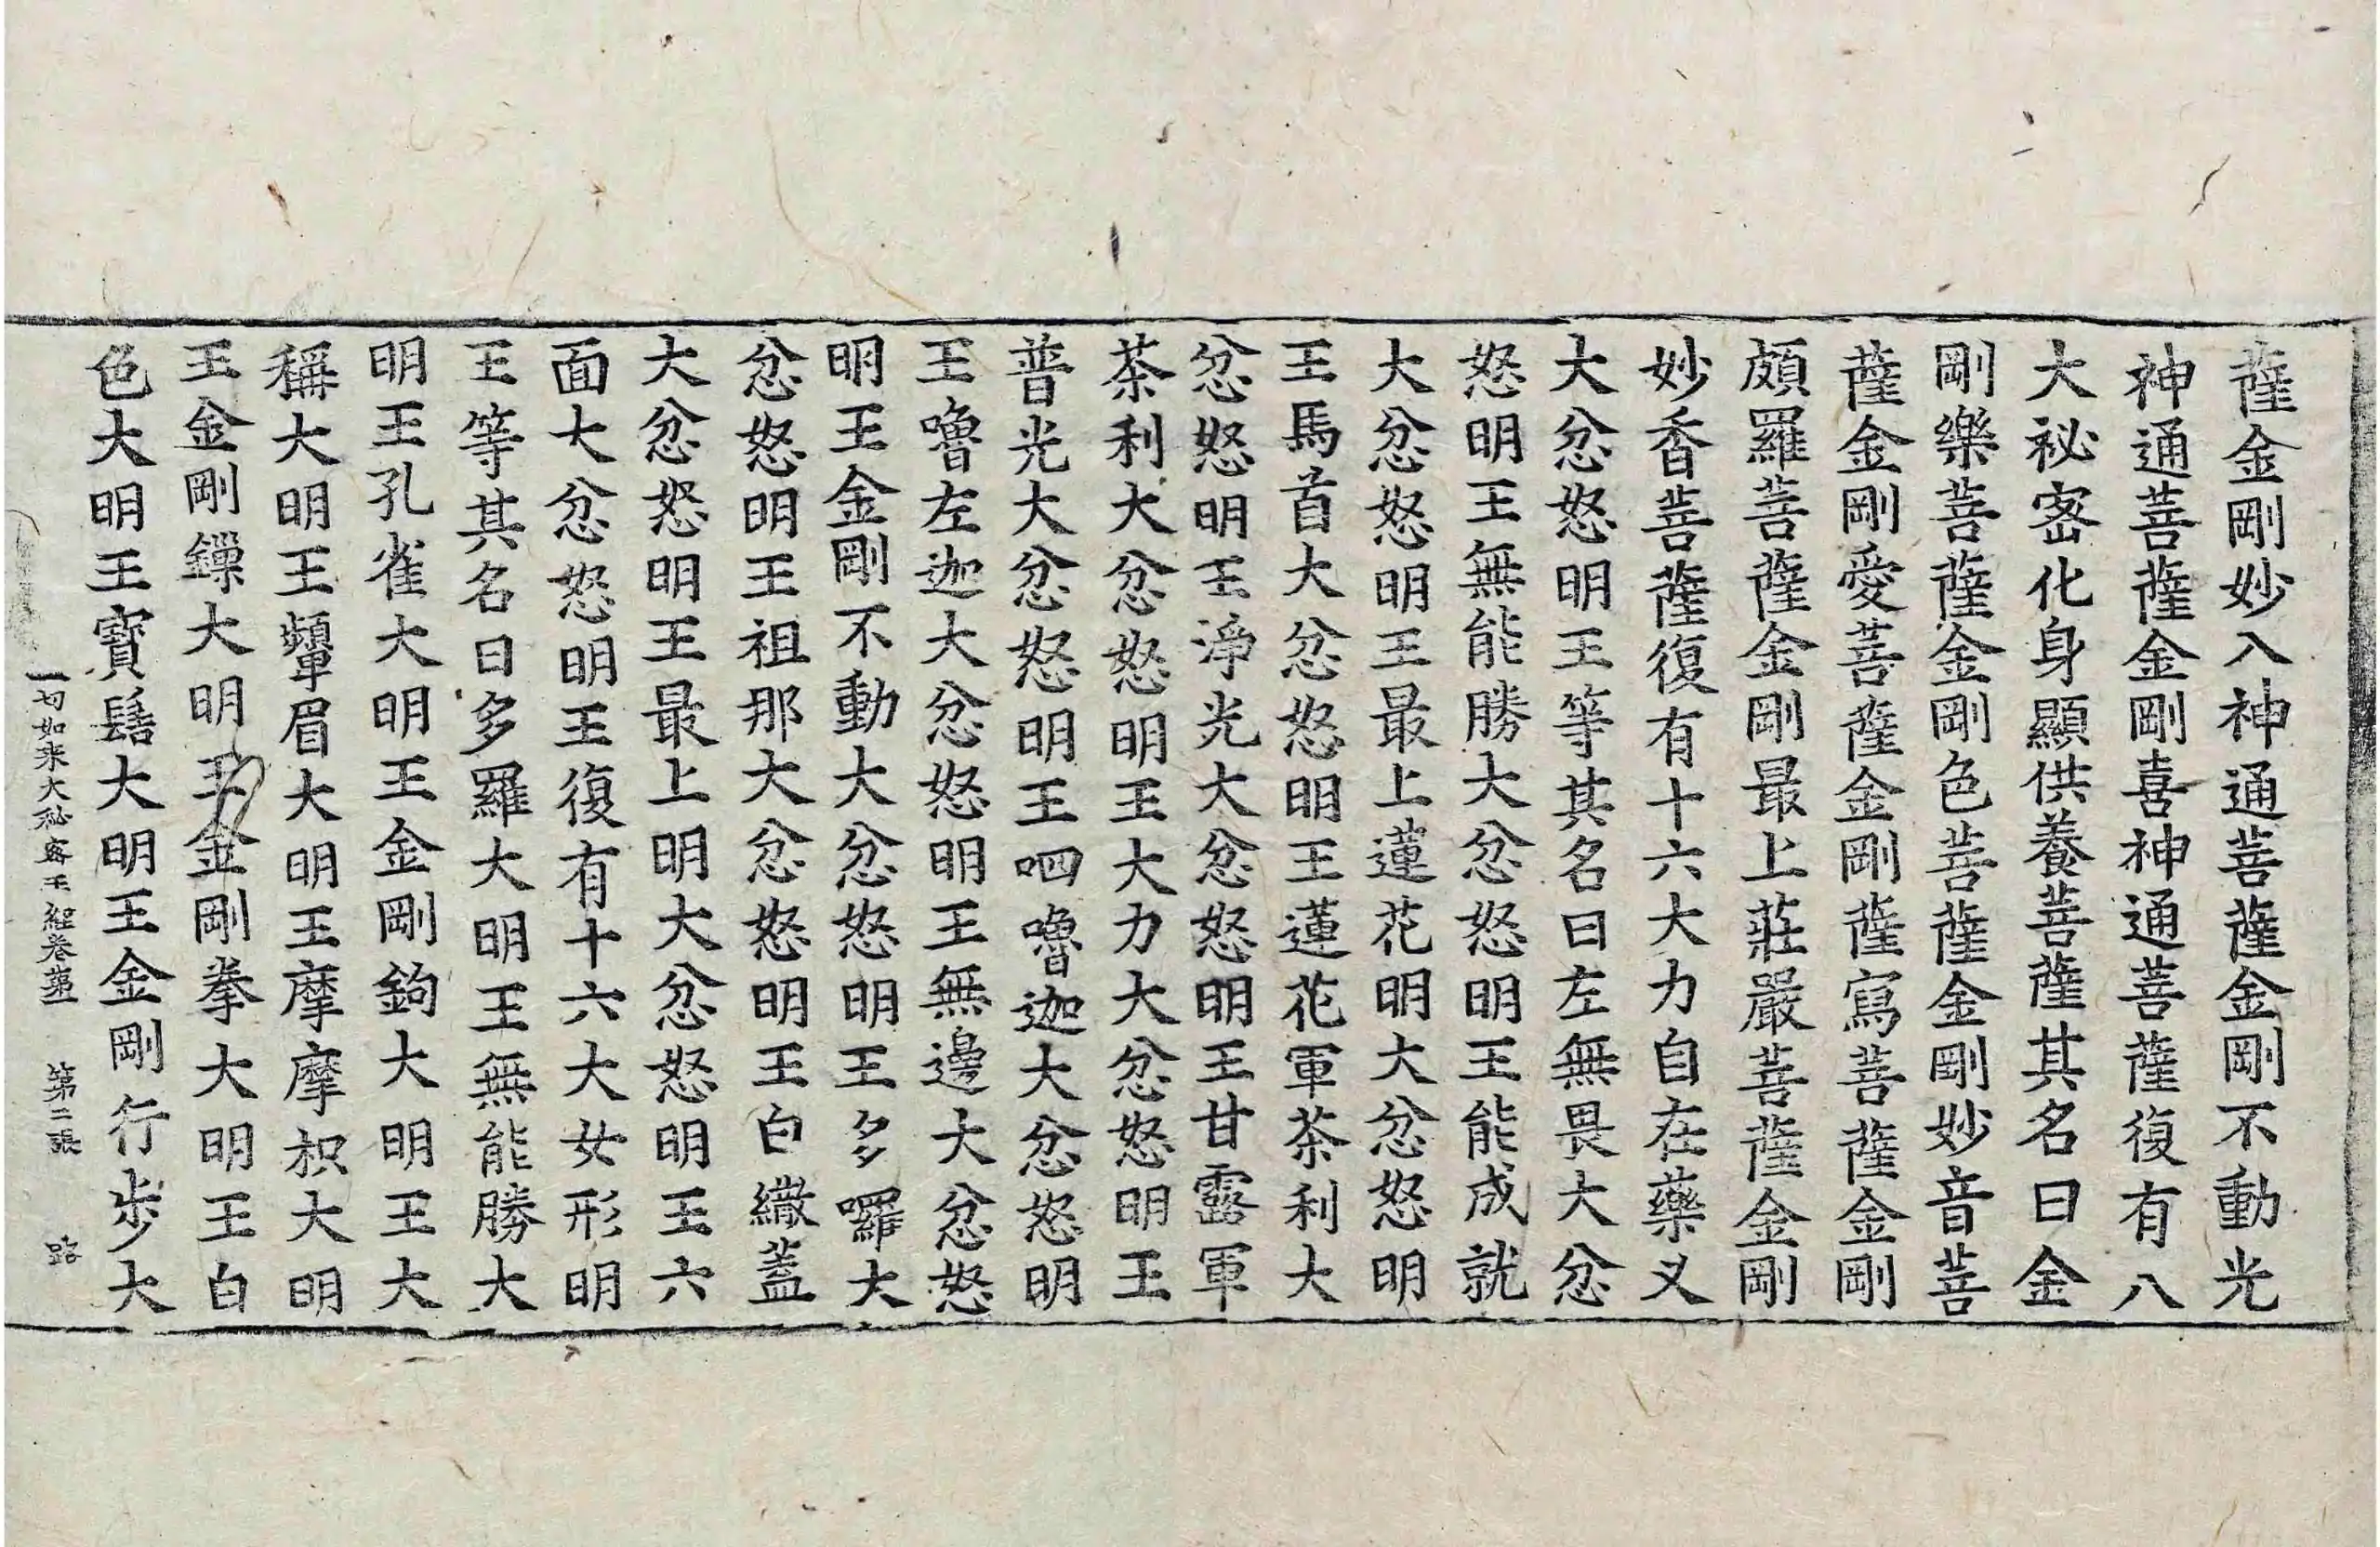 薩金剛妙入神通菩薩金剛不動光
神通菩薩金剛喜神通菩薩復有八
大祕密化身顯供養菩薩其名曰金
剛樂菩薩金剛色菩薩金剛妙音菩
薩金剛愛菩薩金剛薩寫菩薩金剛
頗羅菩薩金剛最上莊嚴菩薩金剛
妙香菩薩復有十六大力自在藥叉
大忿怒明王等其名曰左無畏大忿
怒明王無能勝大忿怒明王能成就
大忿怒明王最上蓮花明大忿怒明
王馬首大忿怒明王蓮花軍茶利大
忿怒明王淨光大忿怒明王甘露軍
茶利大忿怒明王大力大忿怒明王
普光大忿怒明王呬嚕迦大忿怒明
王嚕左迦大忿怒明王無邊大忿怒
明王金剛不動大忿怒明王多囉大
忿怒明王祖那大忿怒明王白繖蓋
大忿怒明王最上明大忿怒明王六
面大忿怒明王復有十六大女形明
王等其名曰多羅大明王無能勝大
明王孔雀大明王金剛鉤大明王大
稱大明王顰眉大明王摩摩枳大明
王金剛鏁大明王金剛拳大明王白
色大明王寶髻大明王金剛行步大
一切如来大秘密王經卷第 第二張 路